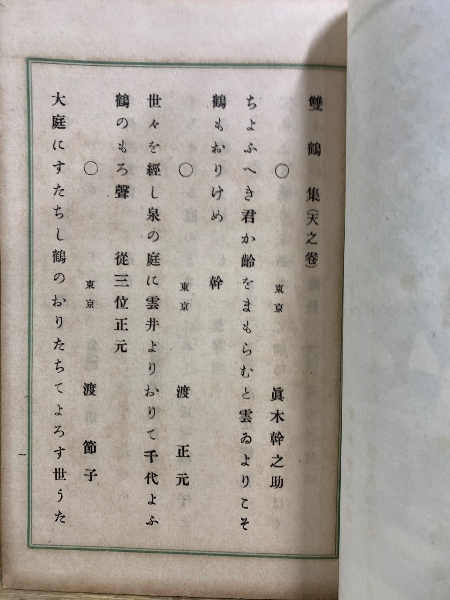 雙鶴集(天之卷)
○ 東京 眞木幹之助
ちよふへき君か齡をまもらむと雲ゐよりこそ
鶴もおりけめ 幹
○ 東京 渡 正元
世々を經し泉の庭に雲井よりおりて千代よふ
鶴のもろ聲 從三位正元
○ 東京 渡 節子
大庭にすたちし鶴のおりたちてよろす世うた
一